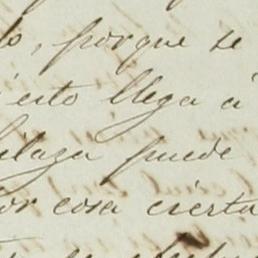 lo, porque se
esto llega á
puede
por cosa cierta